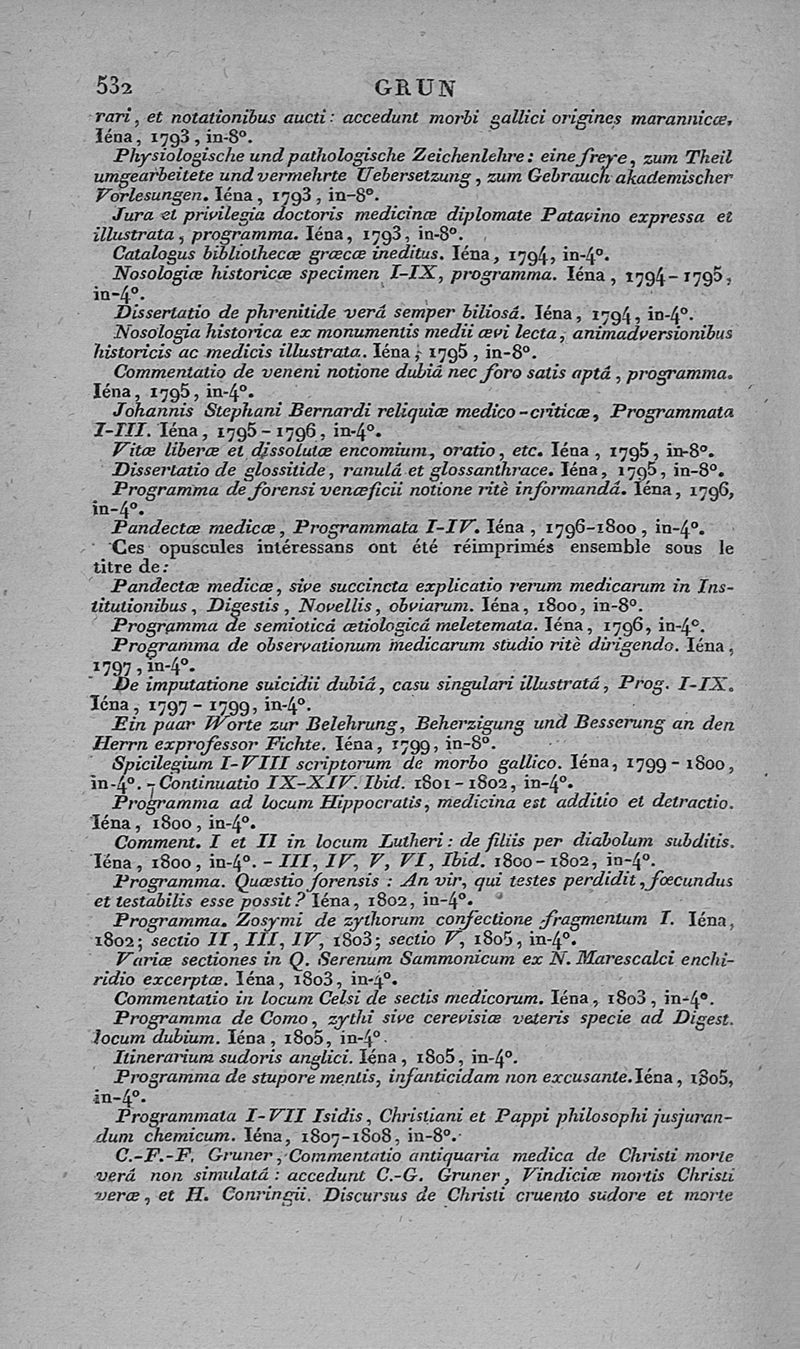 532 GRUN
rari, et notationibus aucti: accedunt morbi gallici origines marannicæ,
Iéna, 1793, in-8°.
Physiologische und pathologische Zeichenlehre: eine freye, zum Theil
umgearbeitete und vermehrte Uebersetzung, zum Gebrauch akademischer
Vorlesungen. Iéna, 1793, in-8°.
Jura et privilegia doctoris medicinæ diplomate Patavino expressa et
illustrata, programma. Iéna, 1793, in-8°.
Catalogus bibliothecæ græcæ ineditus. Iéna, 1794, in-4°.
Nosologiæ historicæ specimen I-IX, programma. Iéna, 1794-1795,
in-4°.
Dissertatio de phrenitide verá semper biliosá. Iéna, 1794, in-4°.
Nosologia historica ex monumentis medii ævi lecta, animadversionibus
historicis ac medicis illustrata. Iéna, 1795, in-8°.
Commentatio de veneni notione dubiá nec foro satis aptá, programma.
Iéna, 1795, in-4°.
Johannis Stephani Bernardi reliquiæ medico-criticæ, Programmata
I-III. Iéna, 1795-1796, in-4°.
Vitæ liberæ et dissolutæ encomium, oratio, etc. Iéna, 1795, in-8°.
Dissertatio de glossitide, ranulá et glossanthrace. Iéna, 1795, in-8°.
Programma de forensi venæficii notione ritè informandá. Iéna, 1796,
in-4°.
Pandectæ medicæ, Programmata I-IV. Iéna, 1796-1800, in-4°.
Ces opuscules intéressans ont été réimprimés ensemble sous le
titre de:
Pandectæ medicæ, sive succincta explicatio rerum medicarum in Ins-
titutionibus, Digestis, Novellis, obviarum. Iéna, 1800, in-8°.
Programma de semioticá ætiologicá meletemata. Iéna, 1796, in-4°.
Programma de observationum medicarum studio ritè dirigendo. Iéna,
1797, in-4°.
De imputatione suicidii dubiá, casu singulari illustratá, Prog. I-IX.
Iéna, 1797-1799, in-4°.
Ein paar Worte zur Belehrung, Beherzigung und Besserung an den
Herrn exprofessor Fichte. Iéna, 1799, in-8°.
Spicilegium I-VIII scriptorum de morbo gallico. Iéna, 1799-1800,
in-4°. - Continuatio IX-XIV. Ibid. 1801-1802, in-4°.
Programma ad locum Hippocratis, medicina est additio et detractio.
Iéna, 1800, in-4°.
Comment. I et II in locum Lutheri: de filiis per diabolum subditis.
Iéna, 1800, in-4°. - III, IV, V, VI, Ibid. 1800-1802, in-4°.
Programma. Quæstio forensis: An vir, qui testes perdidit, fœcundus
et testabilis esse possit? Iéna, 1802, in-4°.
Programma. Zosymi de zythorum confectione fragmentum I. Iéna,
1802; sectio II, III, IV, 1803; sectio V, 1805, in-4°.
Variæ sectiones in Q. Serenum Sammonicum ex N. Marescalci enchi-
ridio excerptæ. Iéna, 1803, in-4°.
Commentatio in locum Celsi de sectis medicorum. Iéna, 1803, in-4°.
Programma de Como, zythi sive cerevisiæ veteris specie ad Digest.
locum dubium. Iéna, 1805, in-4°.
Itinerarium sudoris anglici. Iéna, 1805, in-4°.
Programma de stupore mentis, infanticidam non excusante. Iéna, 1805,
in-4°.
Programmata I-VII Isidis, Christiani et Pappi philosophi jusjuran-
dum chemicum. Iéna, 1807-1808, in-8°.
C.-F.-F. Gruner, Commentatio antiquaria medica de Christi morte
verá non simulatá: accedunt C.-G. Gruner, Vindiciæ mortis Christi
veræ, et H. Conringii. Discursus de Christi cruento sudore et morte